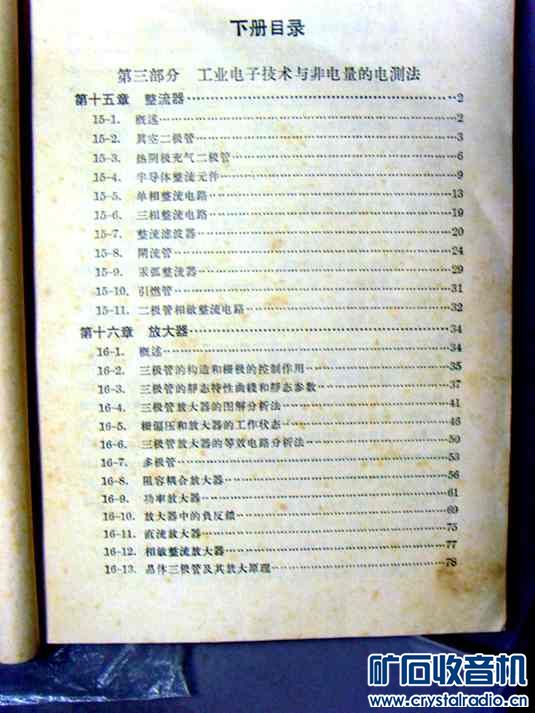 下册目录
第三部分 工业电子技术与非电量的电测法
第十五章 整流器……2
15-1. 概述……2
15-2. 真空二极管……3
15-3. 热阴极充气二极管……6
15-4. 半导体整流元件……9
15-5. 单相整流电路……13
15-6. 三相整流电路……19
15-7. 整流滤波器……20
15-8. 闸流管……24
15-9. 汞弧整流器……29
15-10. 引燃管……31
15-11. 二极管相敏整流电路……32
第十六章 放大器……34
16-1. 概述……34
16-2. 三极管的构造和栅极的控制作用……35
16-3. 三极管的静态特性曲线和静态参数……37
16-4. 三极管放大器的图解分析法……41
16-5. 栅偏压和放大器的工作状态……46
16-6. 三极管放大器的等效电路分析法……50
16-7. 多极管……53
16-8. 阻容耦合放大器……56
16-9. 功率放大器……61
16-10. 放大器中的负反馈……69
16-11. 直流放大器……75
16-12. 相敏整流放大器……77
16-13. 晶体三极管及其放大原理……78
矿石收音机
www.crystalradio.cn